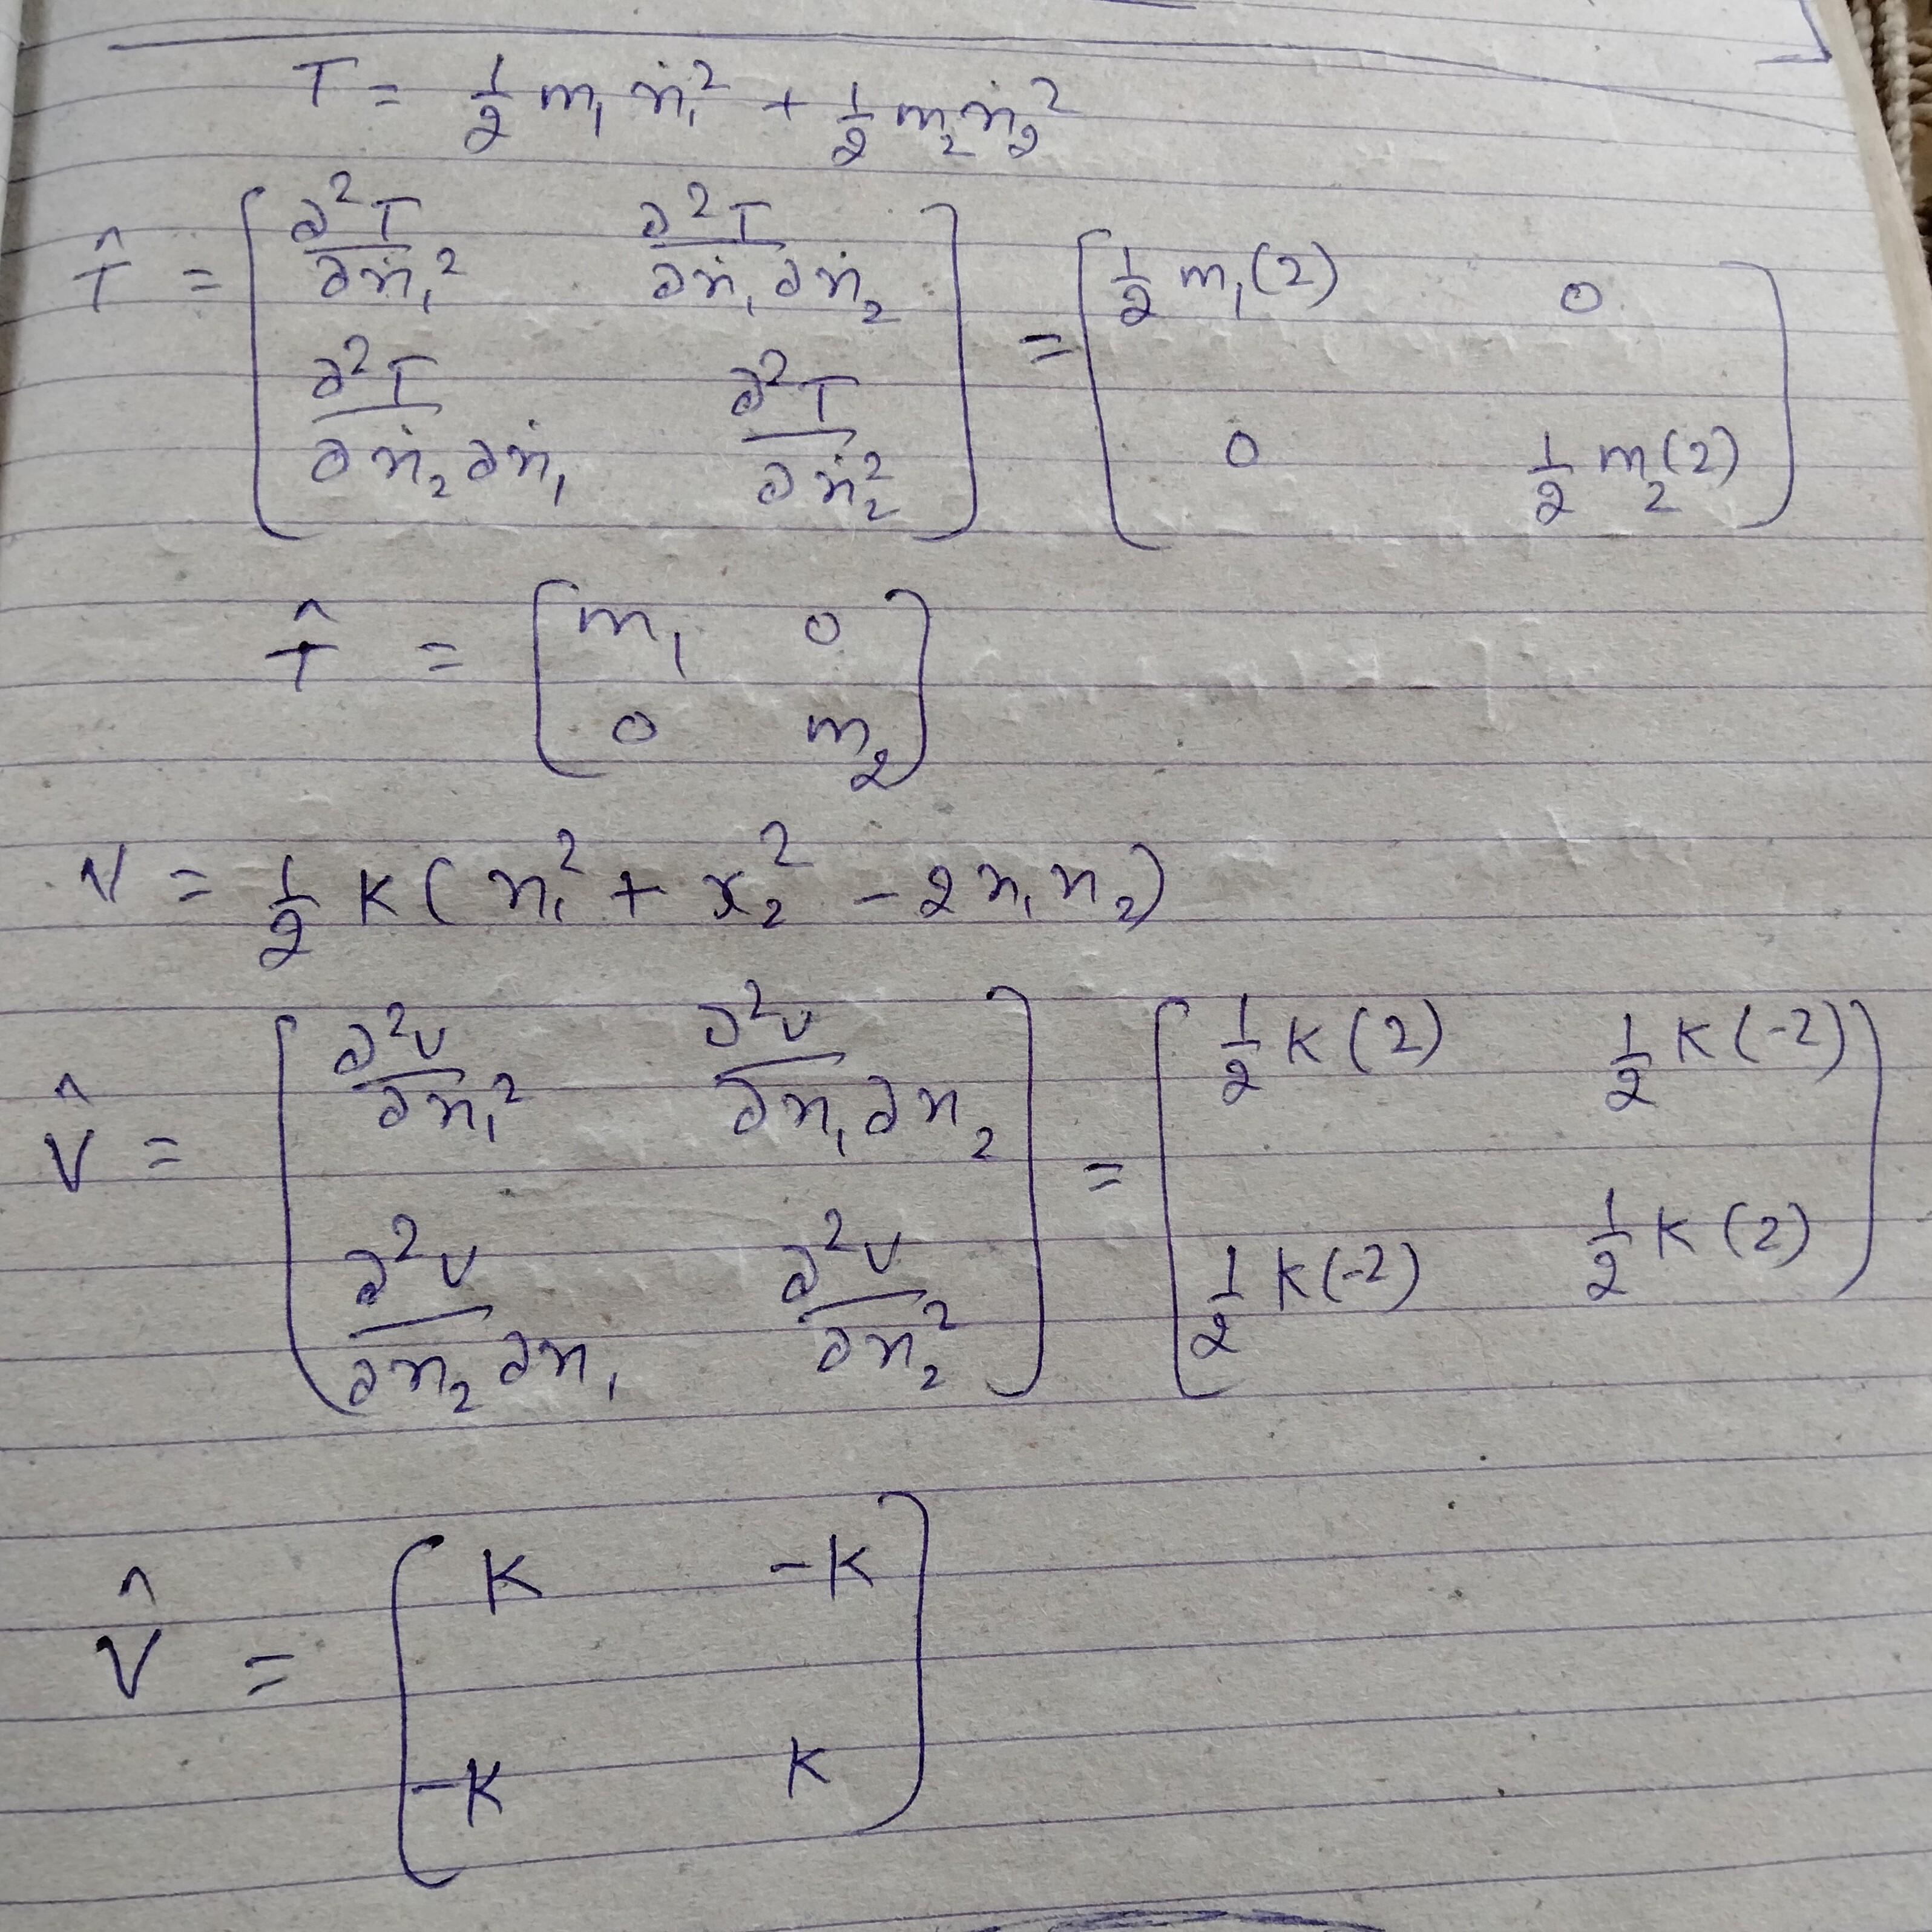 T = 1/2 m₁ ẋ₁² + 1/2 m₂ ẋ₂²
T̂ = [ ∂²T/∂ẋ₁²   ∂²T/∂ẋ₁∂ẋ₂ ; ∂²T/∂ẋ₂∂ẋ₁   ∂²T/∂ẋ₂² ] = [ 1/2 m₁(2)   0 ; 0   1/2 m₂(2) ]
T̂ = [ m₁   0 ; 0   m₂ ]
V = 1/2 K ( x₁² + x₂² - 2x₁x₂ )
V̂ = [ ∂²V/∂x₁²   ∂²V/∂x₁∂x₂ ; ∂²V/∂x₂∂x₁   ∂²V/∂x₂² ] = [ 1/2 K(2)   1/2 K(-2) ; 1/2 K(-2)   1/2 K(2) ]
V̂ = [ K   -K ; -K   K ]